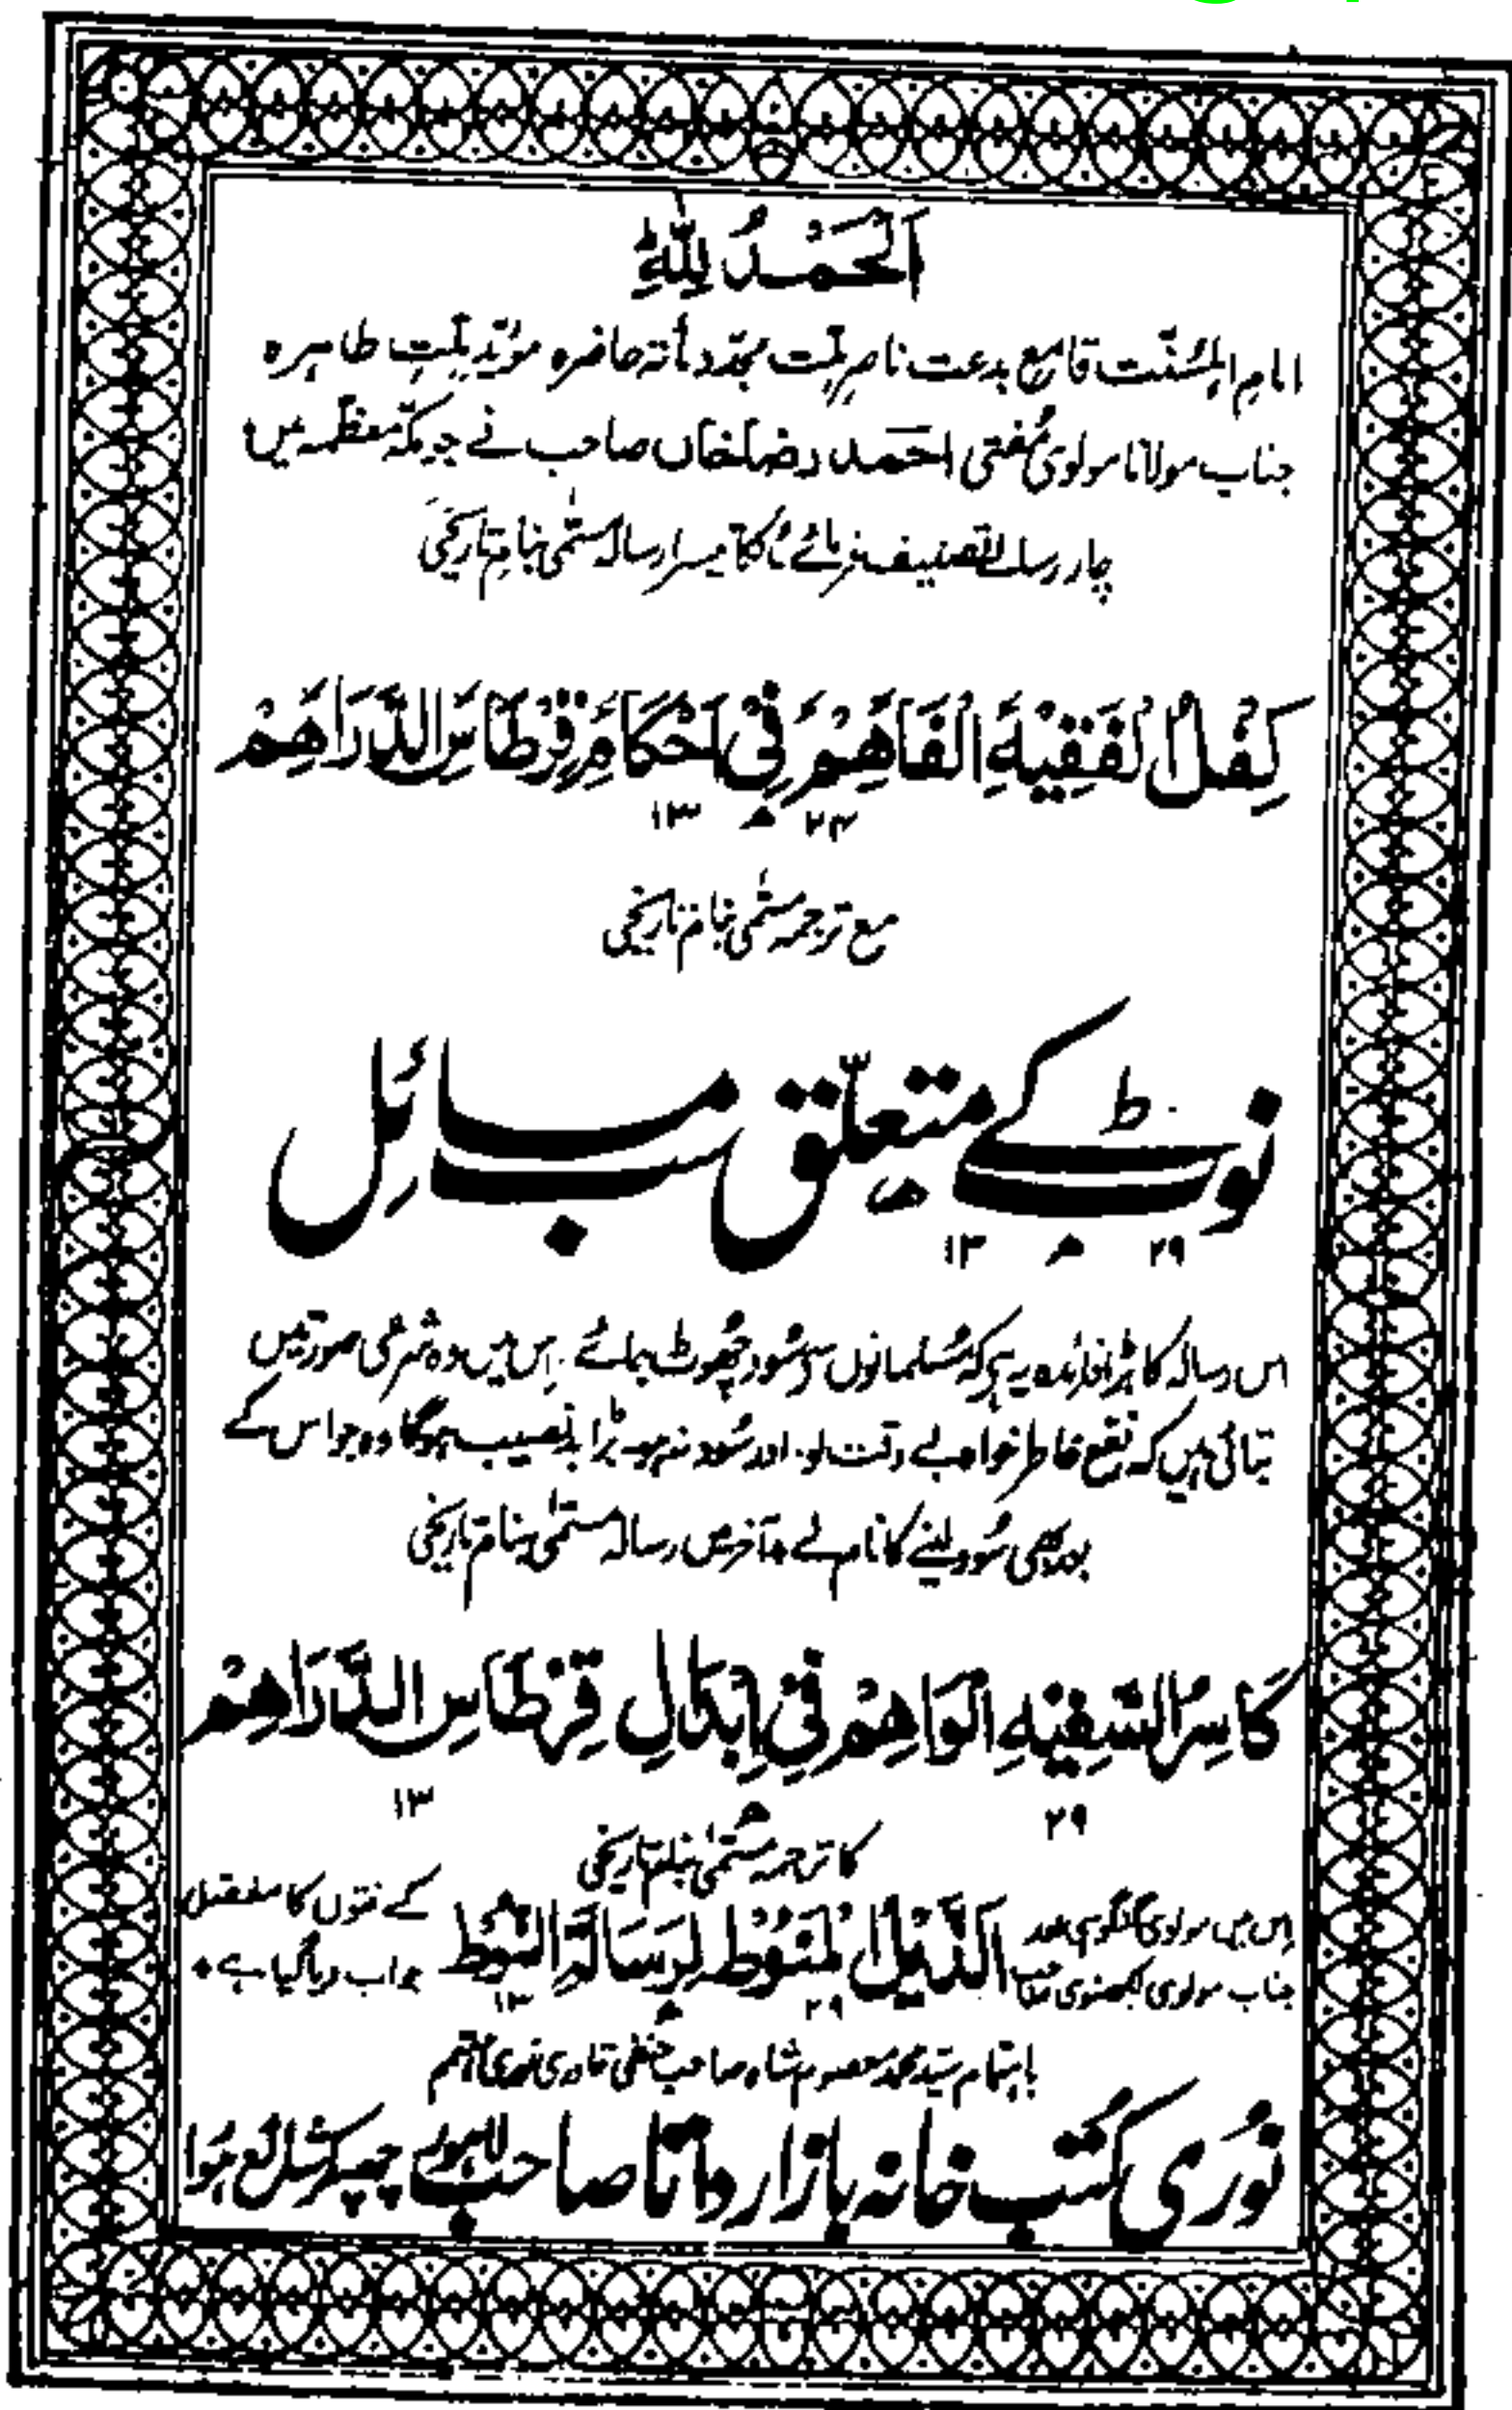 اَلْحَمْدُ لِلّٰهِ
امامِ اہلسنّت قامعِ بدعت ناصرِ ملّت مجدّد مأتہ حاضرہ مؤیّدِ ملّتِ طاہرہ
جناب مولانا مولوی مُفتی احمد رضا خاں صاحب نے جو مکّہ معظّمہ میں
چار رسالے تصنیف فرمائے اُنکا تیسرا رسالہ مسمّٰی بنامِ تاریخی
كِفْلُ الْفَقِيْهِ الْفَاهِمْ فِيْ اَحْكَامِ قِرْطَاسِ الدَّرَاهِمْ
۱۳ ھ ۲۴
مع ترجمہ مسمّٰی بنام تاریخی
نوٹ کے متعلّق سب مسائل
۱۳ ھ ۲۹
اس رسالہ کا بڑا فائدہ یہ ہے کہ مُسلمانوں سے سُود چھُوٹ جائے۔ اِس میں وہ شرعی صورتیں
بتائی ہیں کہ نفع خاطر خواہ بے دقت لو۔ اور سُود نہ ہو۔ بڑا بدنصیب ہوگا وہ جو اس کے
بعد بھی سُود لینے کا نام لے۔ آخر میں رسالہ مسمّٰی بنام تاریخی
كَاسِرُ السَّفِيْهِ الْوَاهِمْ فِيْ اِبْدَالِ قِرْطَاسِ الدَّرَاهِمْ
۱۳ ھ ۲۹
کا ترجمہ مسمّٰی بنام تاریخی
اِس میں مولوی گنگوہی اور جناب مولوی لکھنوی صاحب اَلذَّيْلُ الْمَنُوْطْ لِرِسَالَةِ النُّوْطْ کے فتووں کا مفصّل جواب دیا گیا ہے
۱۳ ھ ۲۹
باہتمام سیّد محمد معصوم شاہ صاحب حنفی قادری نوری مہتمم
نُوری کُتب خانہ بازار داتا صاحب لاہور سے چھپکر شائع ہُوا